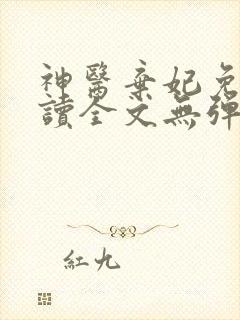 神醫棄妃免
讀全文無彈
紅九